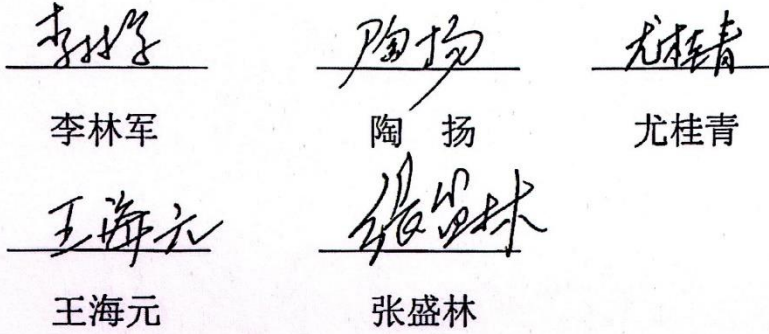 李林军 陶扬 尤桂青
李林军 陶 扬 尤桂青
王海元 张盛林
王海元 张盛林